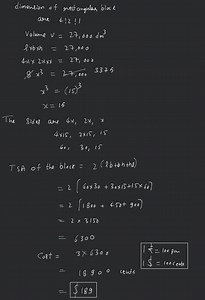 dimension of rectangular block
are 4:2:1
Volume V = 27,000 dm³
l×b×h = 27,000
4x × 2x × x = 27,000
8 x³ = 27,000 3375
x³ = (15)³
x = 15
The sides are 4x, 2x, x
4×15, 2×15, 15
60, 30, 15
TSA of the block = 2 (lb+bh+hl)
= 2 [60×30 + 30×15 + 15×60]
= 2 [1800 + 450 + 900]
= 2 × 3150
= 6300
Cost = 3 × 6300
= 18900 cents
= $ 189
1 $ = 100 cents